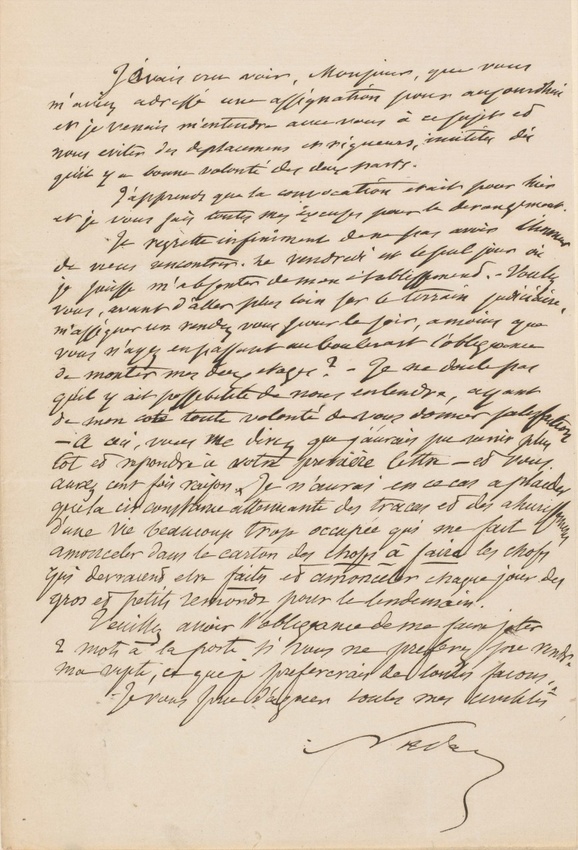 J'avais cru voir, Monsieur, que vous
m'aviez adressé une assignation pour aujourd'hui
et je venais m'entendre avec vous à ce sujet et
nous eviter des deplacements en rigueurs, inutiles dès
qu'il y a bonne volonté des deux parts.
J'apprends que la convocation etait pour hier
et je vous fais toutes mes excuses pour le derangement.
Je regrette infiniment de ne pas avoir l'honneur
de vous rencontrer. Le vendredi est le seul jour où
je puisse m'absenter de mon etablissement. - Voulez
vous, avant d'aller plus loin sur le terrain judiciaire,
m'assigner un rendez vous pour le soir, a moins que
vous n'ayez en passant au boulevart l'obligeance
de monter mes deux etages? - Je ne doute pas
qu'il y ait possibilité de nous entendre, ayant
de mon coté toute volonté de vous donner satisfaction
- A ceci, vous me direz que j'aurais pu venir plus
tot et repondre à votre première lettre - et vous
aurez cent fois raison. Je n'aurai en ce cas a plaider
que la circonstance attenuante des tracas et des ahurissements
d'une vie beaucoup trop occupée qui me fait
amonceler dans le carton des choses à faire les choses
qui devraient etre faites et amonceler chaque jour des
gros et petits remords pour le lendemain.
Veuillez avoir l'obligeance de me faire jeter
2 mots à la poste si vous ne preferez me rendre
ma visite, ce que je prefererais de toutes facons.
Je vous prie d'agreer toutes mes civilités
Nadar